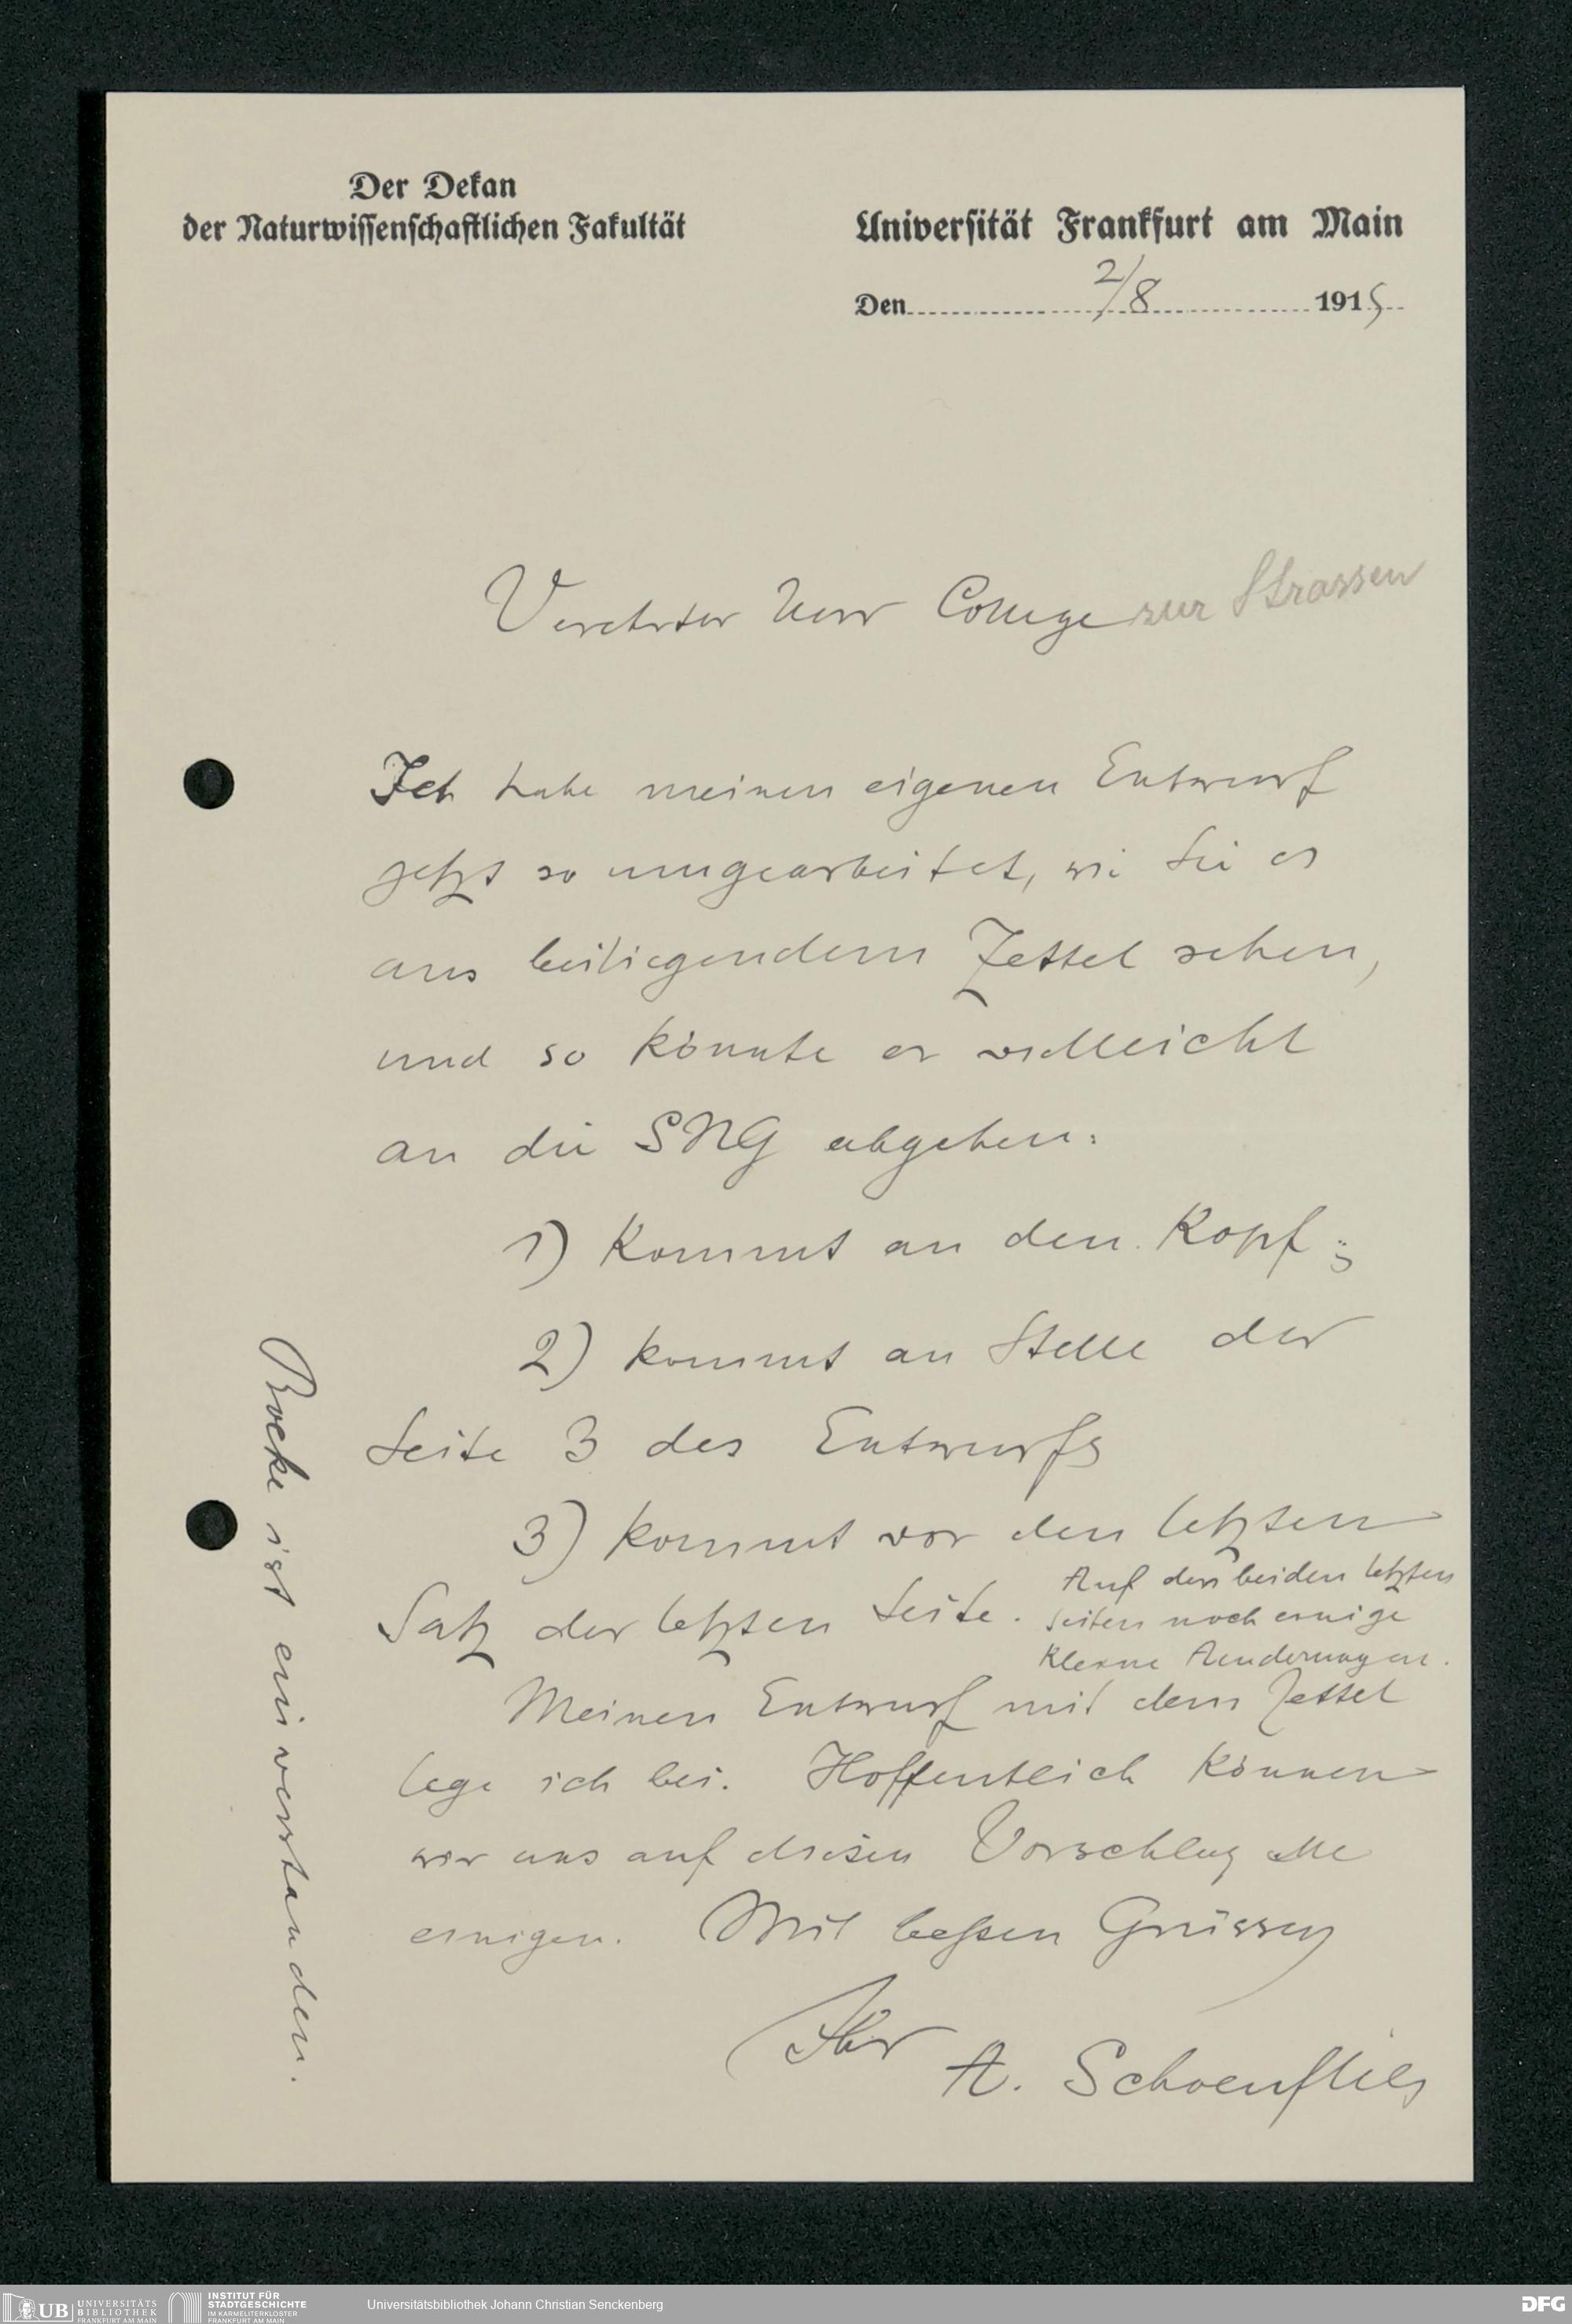 Der Dekan
der Naturwissenschaftlichen Fakultät
Universität Frankfurt am Main
Den 2/8 1915
Verehrter Herr College zur Strassen
Ich habe meinen eigenen Entwurf
jetzt so umgearbeitet, wie Sie es
aus beiliegendem Zettel sehen,
und so könnte er vielleicht
an die SNG abgehen.
1) kommt an den Kopf;
2) kommt an Stelle der
Seite 3 des Entwurfs
3) kommt vor den letzten
Satz der letzten Seite.
Auf den beiden letzten
Seiten noch einige
kleine Aenderungen.
Meinen Entwurf mit dem Zettel
lege ich bei. Hoffentlich können
wir uns auf diesen Vorschlag alle
einigen. Mit besten Grüssen
Ihr
A. Schoenflies
Boeke ist einverstanden.
UB UNIVERSITÄTS
BIBLIOTHEK
FRANKFURT AM MAIN
INSTITUT FÜR
STADTGESCHICHTE
IM KARMELITERKLOSTER
FRANKFURT AM MAIN
Universitätsbibliothek Johann Christian Senckenberg
DFG